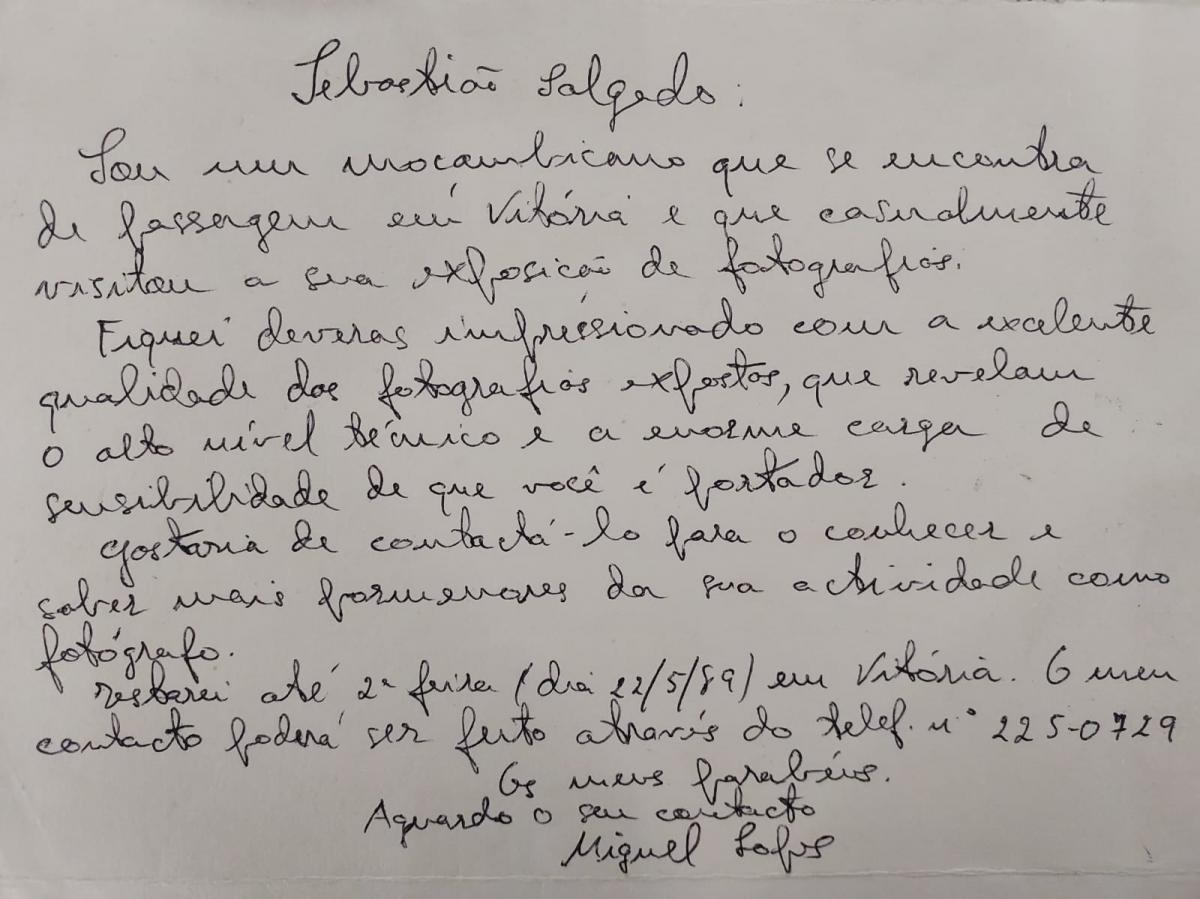 Sebastião Salgado:
Sou um moçambicano que se encontra
de passagem em Vitória e que casualmente
visitou a sua exposição de fotografias.
Fiquei deveras impressionado com a excelente
qualidade das fotografias expostas, que revelam
o alto nível técnico e a enorme carga de
sensibilidade de que você é portador.
Gostaria de contactá-lo para o conhecer e
saber mais pormenores da sua actividade como
fotógrafo.
restarei até 2ª feira (dia 22/5/89) em Vitória. O meu
contacto poderá ser feito através do telef. nº 225-0729
Os meus parabéns.
Aguardo o seu contacto
Miguel Lopes